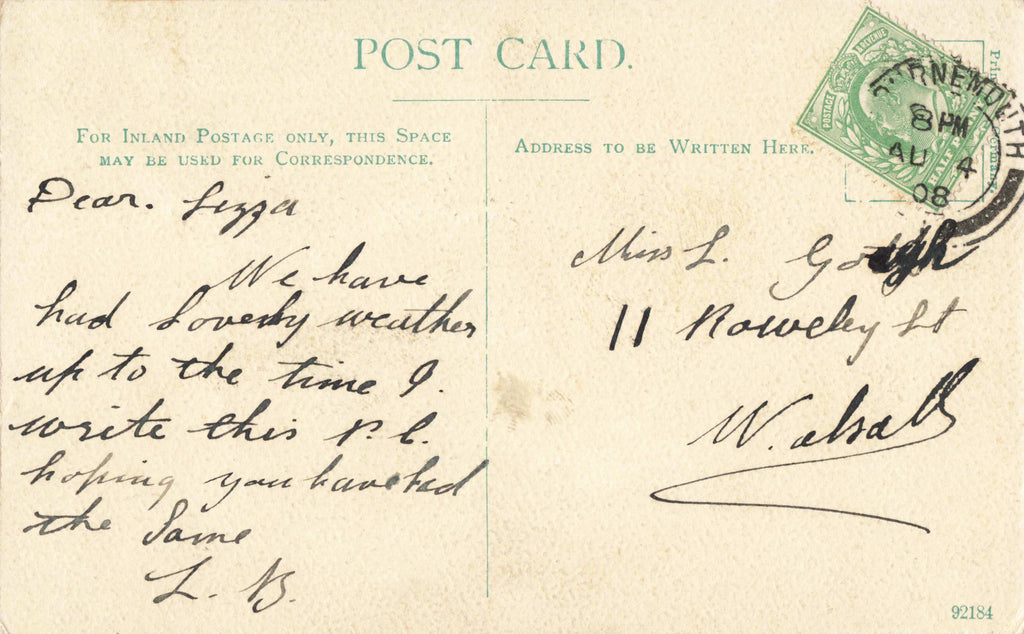 POST CARD.
FOR INLAND POSTAGE ONLY, THIS SPACE
MAY BE USED FOR CORRESPONDENCE.
Dear. Lizza
We have
had Loverly weather
up to the time I.
write this P.C.
hoping you have had
the Same
L. B.
ADDRESS TO BE WRITTEN HERE.
POSTAGE
REVENUE
HALFPENNY
BOURNEMOUTH
8 PM
AU 4
08
Miss L. Gough
11 Roweley St
Walsall
92184